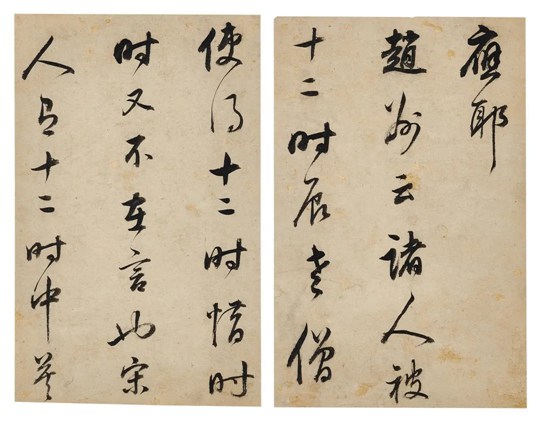 應耶
趙州云諸人被
十二时辰老僧
使得十二时惜时
时又不在言也宋
人十二时中莫